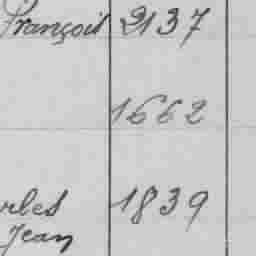 François 2137
1662
rles 1839
Jean